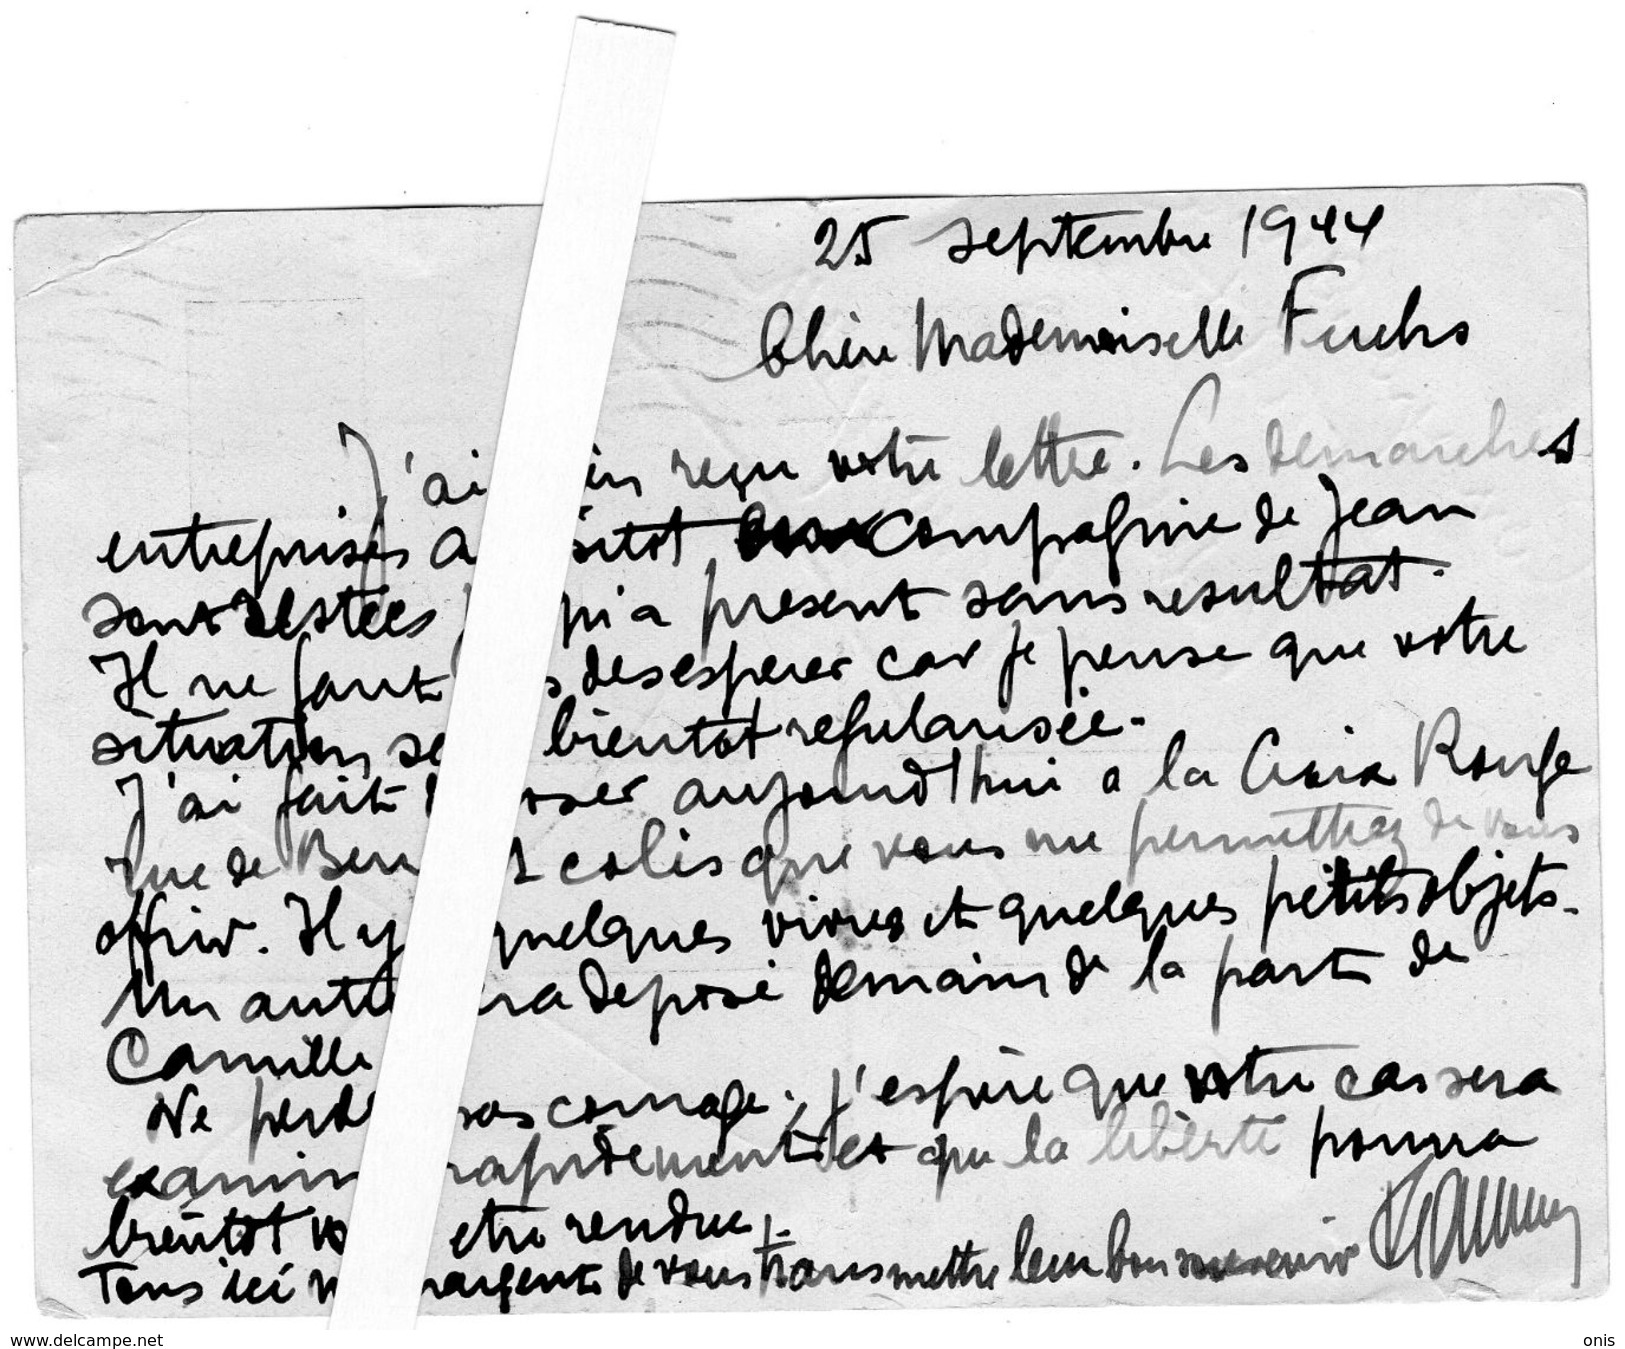 25 septembre 1944
Chère Mademoiselle Fuchs
J'ai reçu votre lettre. Les demarches
entreprises compagnie de Jean
sont restées present sans resultat.
Il ne faut desesperer car je pense que votre
situation bientot regularisée.
J'ai fait aujourd'hui a la Croix Rouge
rue de colis que vous me permettrez de vous
offrir. Il y quelques vivres et quelques petits objets.
Un deposé demain de la part de
Camille
Ne courage. J'espère que votre cas sera
rapidement et que la liberté pourra
bientot etre rendue.
Tous ici de vous transmettre leur bon souvenir
www.delcampe.net
onis